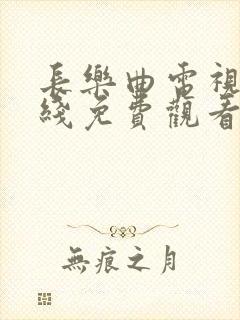 長樂曲電視
綫免費觀看
無痕之月